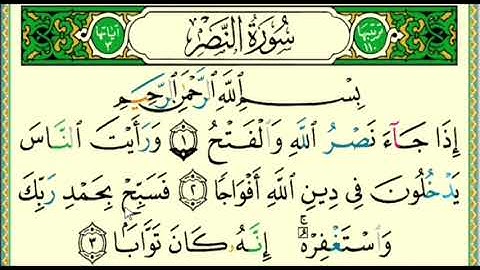 ترتيبها ١١٠ سُورَةُ النَّصْرِ آياتها ٣
بِسْمِ ٱللَّهِ ٱلرَّحْمَٰنِ ٱلرَّحِيمِ
إِذَا جَآءَ نَصْرُ ٱللَّهِ وَٱلْفَتْحُ ۝١ وَرَأَيْتَ ٱلنَّاسَ
يَدْخُلُونَ فِى دِينِ ٱللَّهِ أَفْوَاجًا ۝٢ فَسَبِّحْ بِحَمْدِ رَبِّكَ
وَٱسْتَغْفِرْهُ ۚ إِنَّهُۥ كَانَ تَوَّابًۢا ۝٣